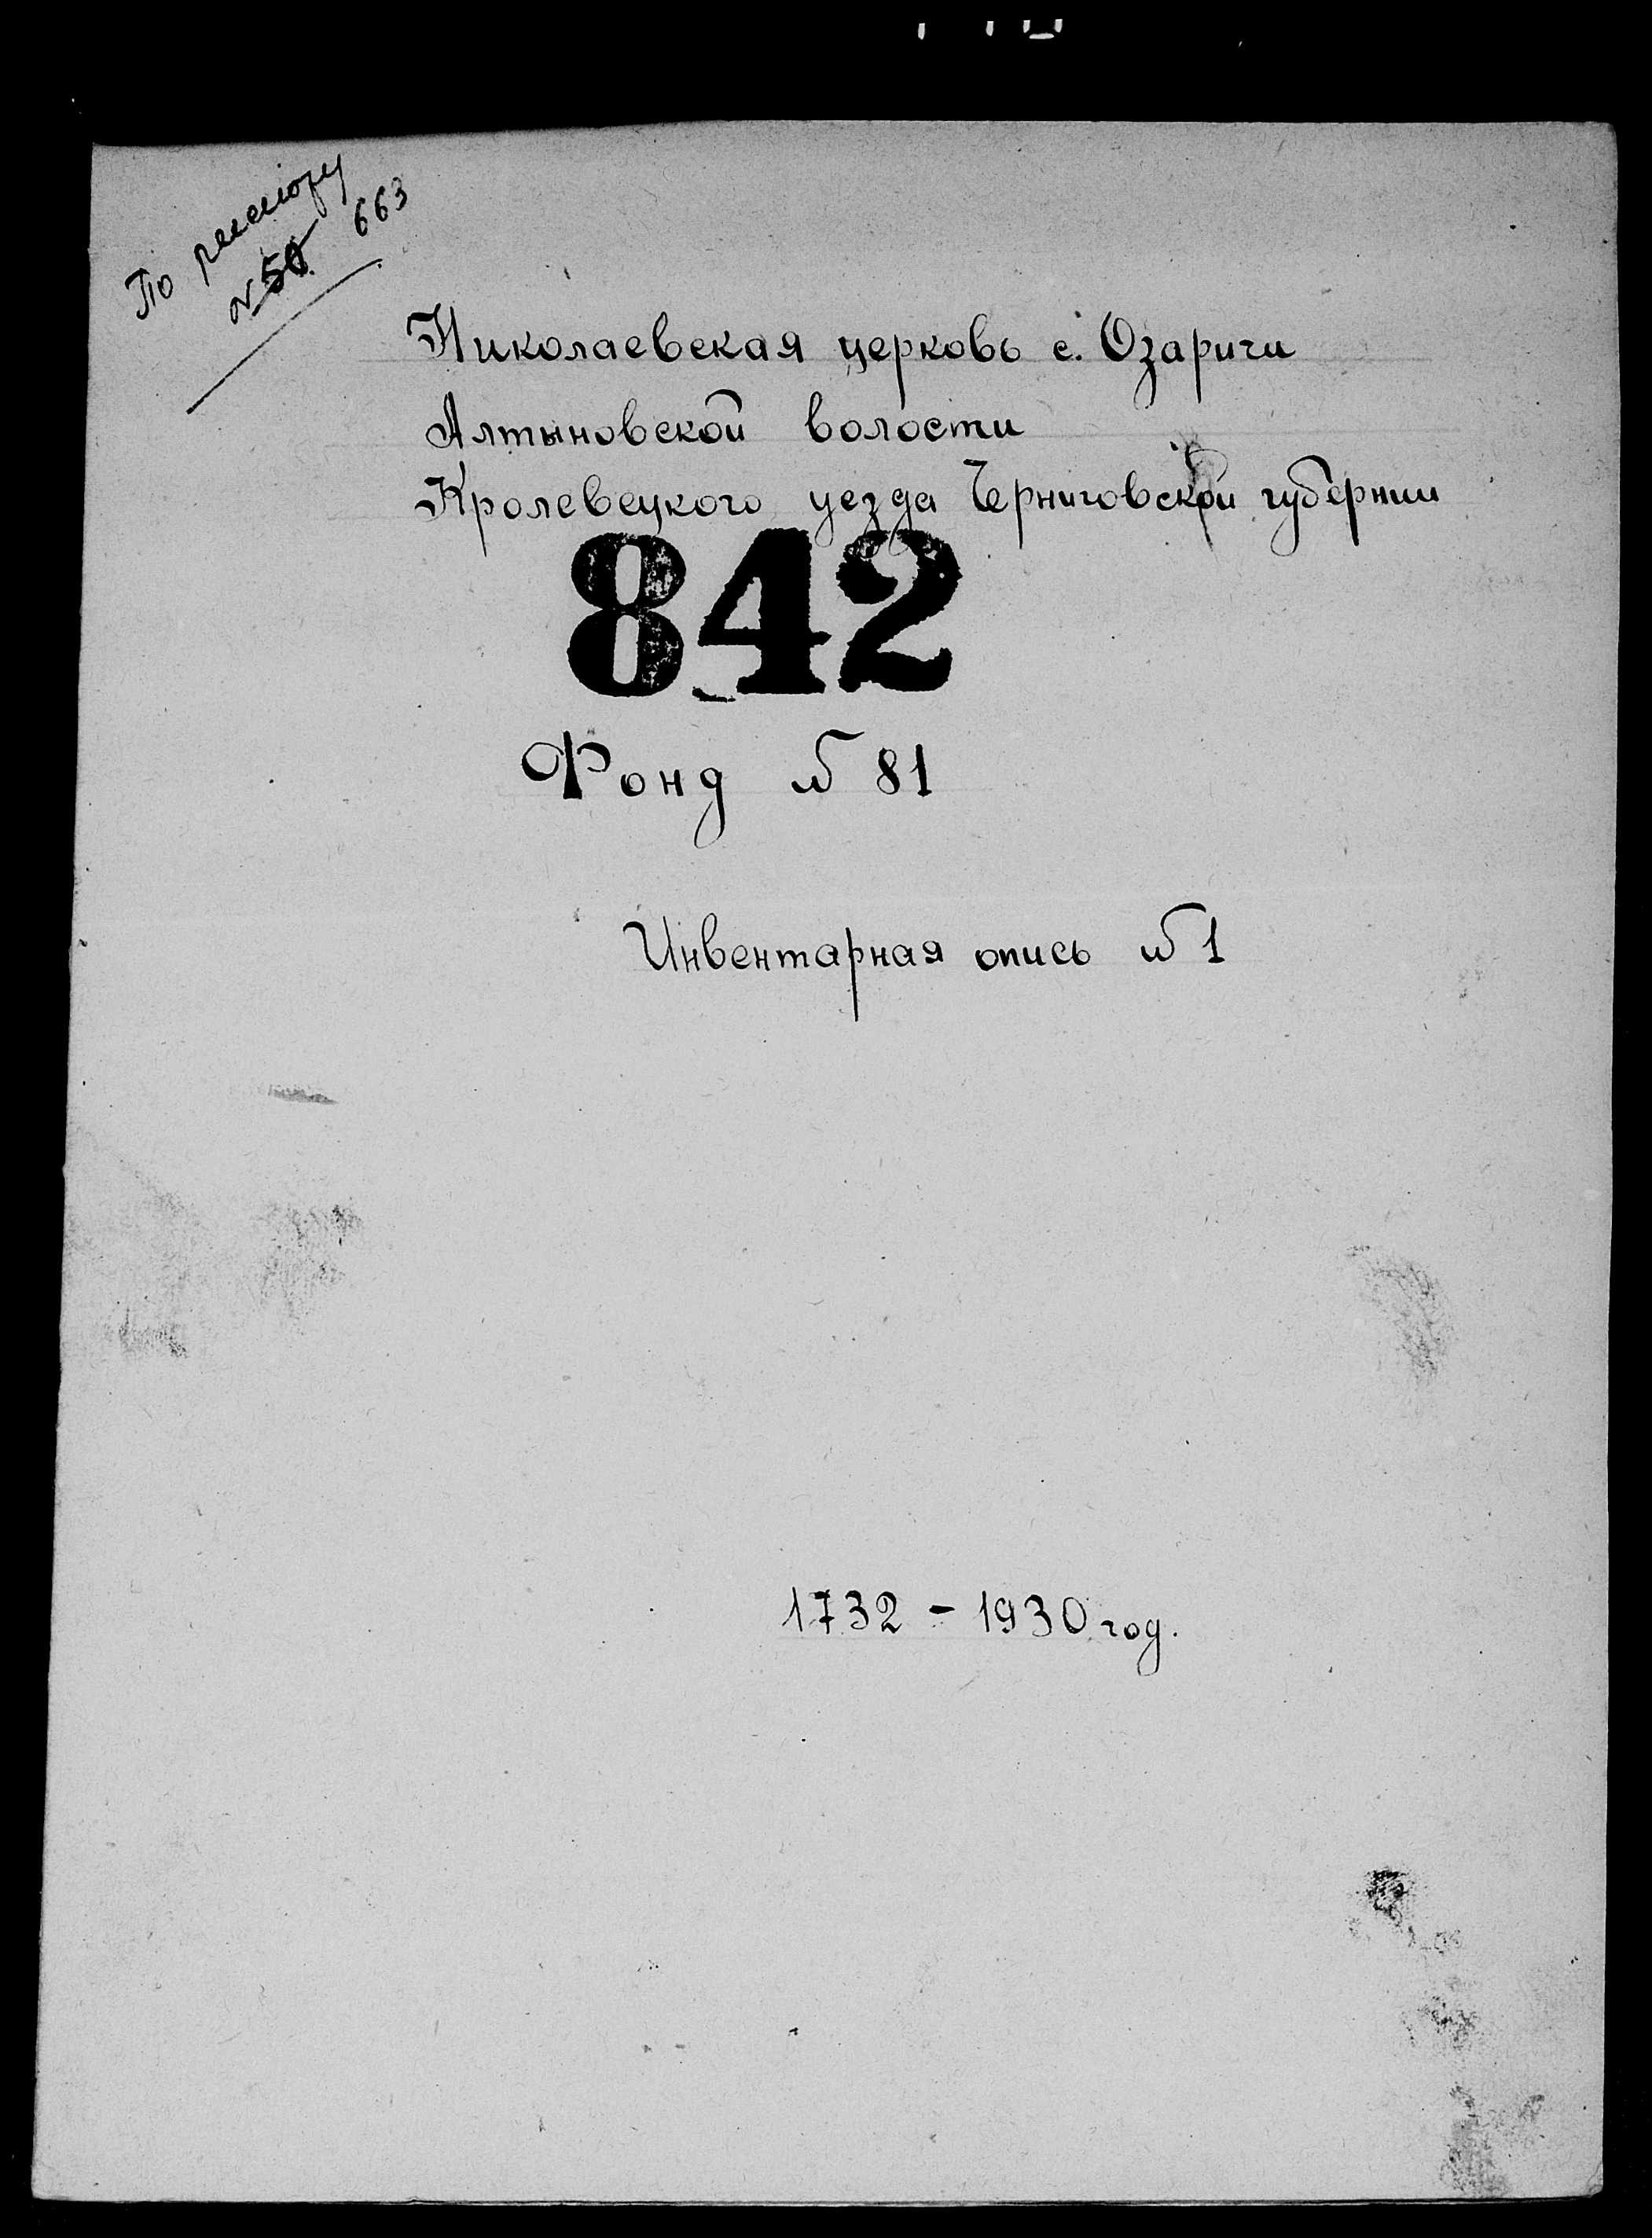 По реестру
№ 50 663
Николаевская церковь с. Озаричи
Алтыновской волости
Кролевецкого уезда Черниговской губернии
842
Фонд № 81
Инвентарная опись № 1
1732 - 1930 год.